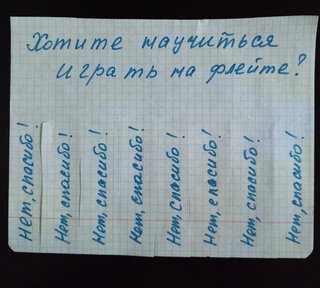 Хотите научиться
играть на флейте?
Нет, спасибо!
Нет, спасибо!
Нет, спасибо!
Нет, спасибо!
Нет, спасибо!
Нет, спасибо!
Нет, спасибо!
Нет, спасибо!